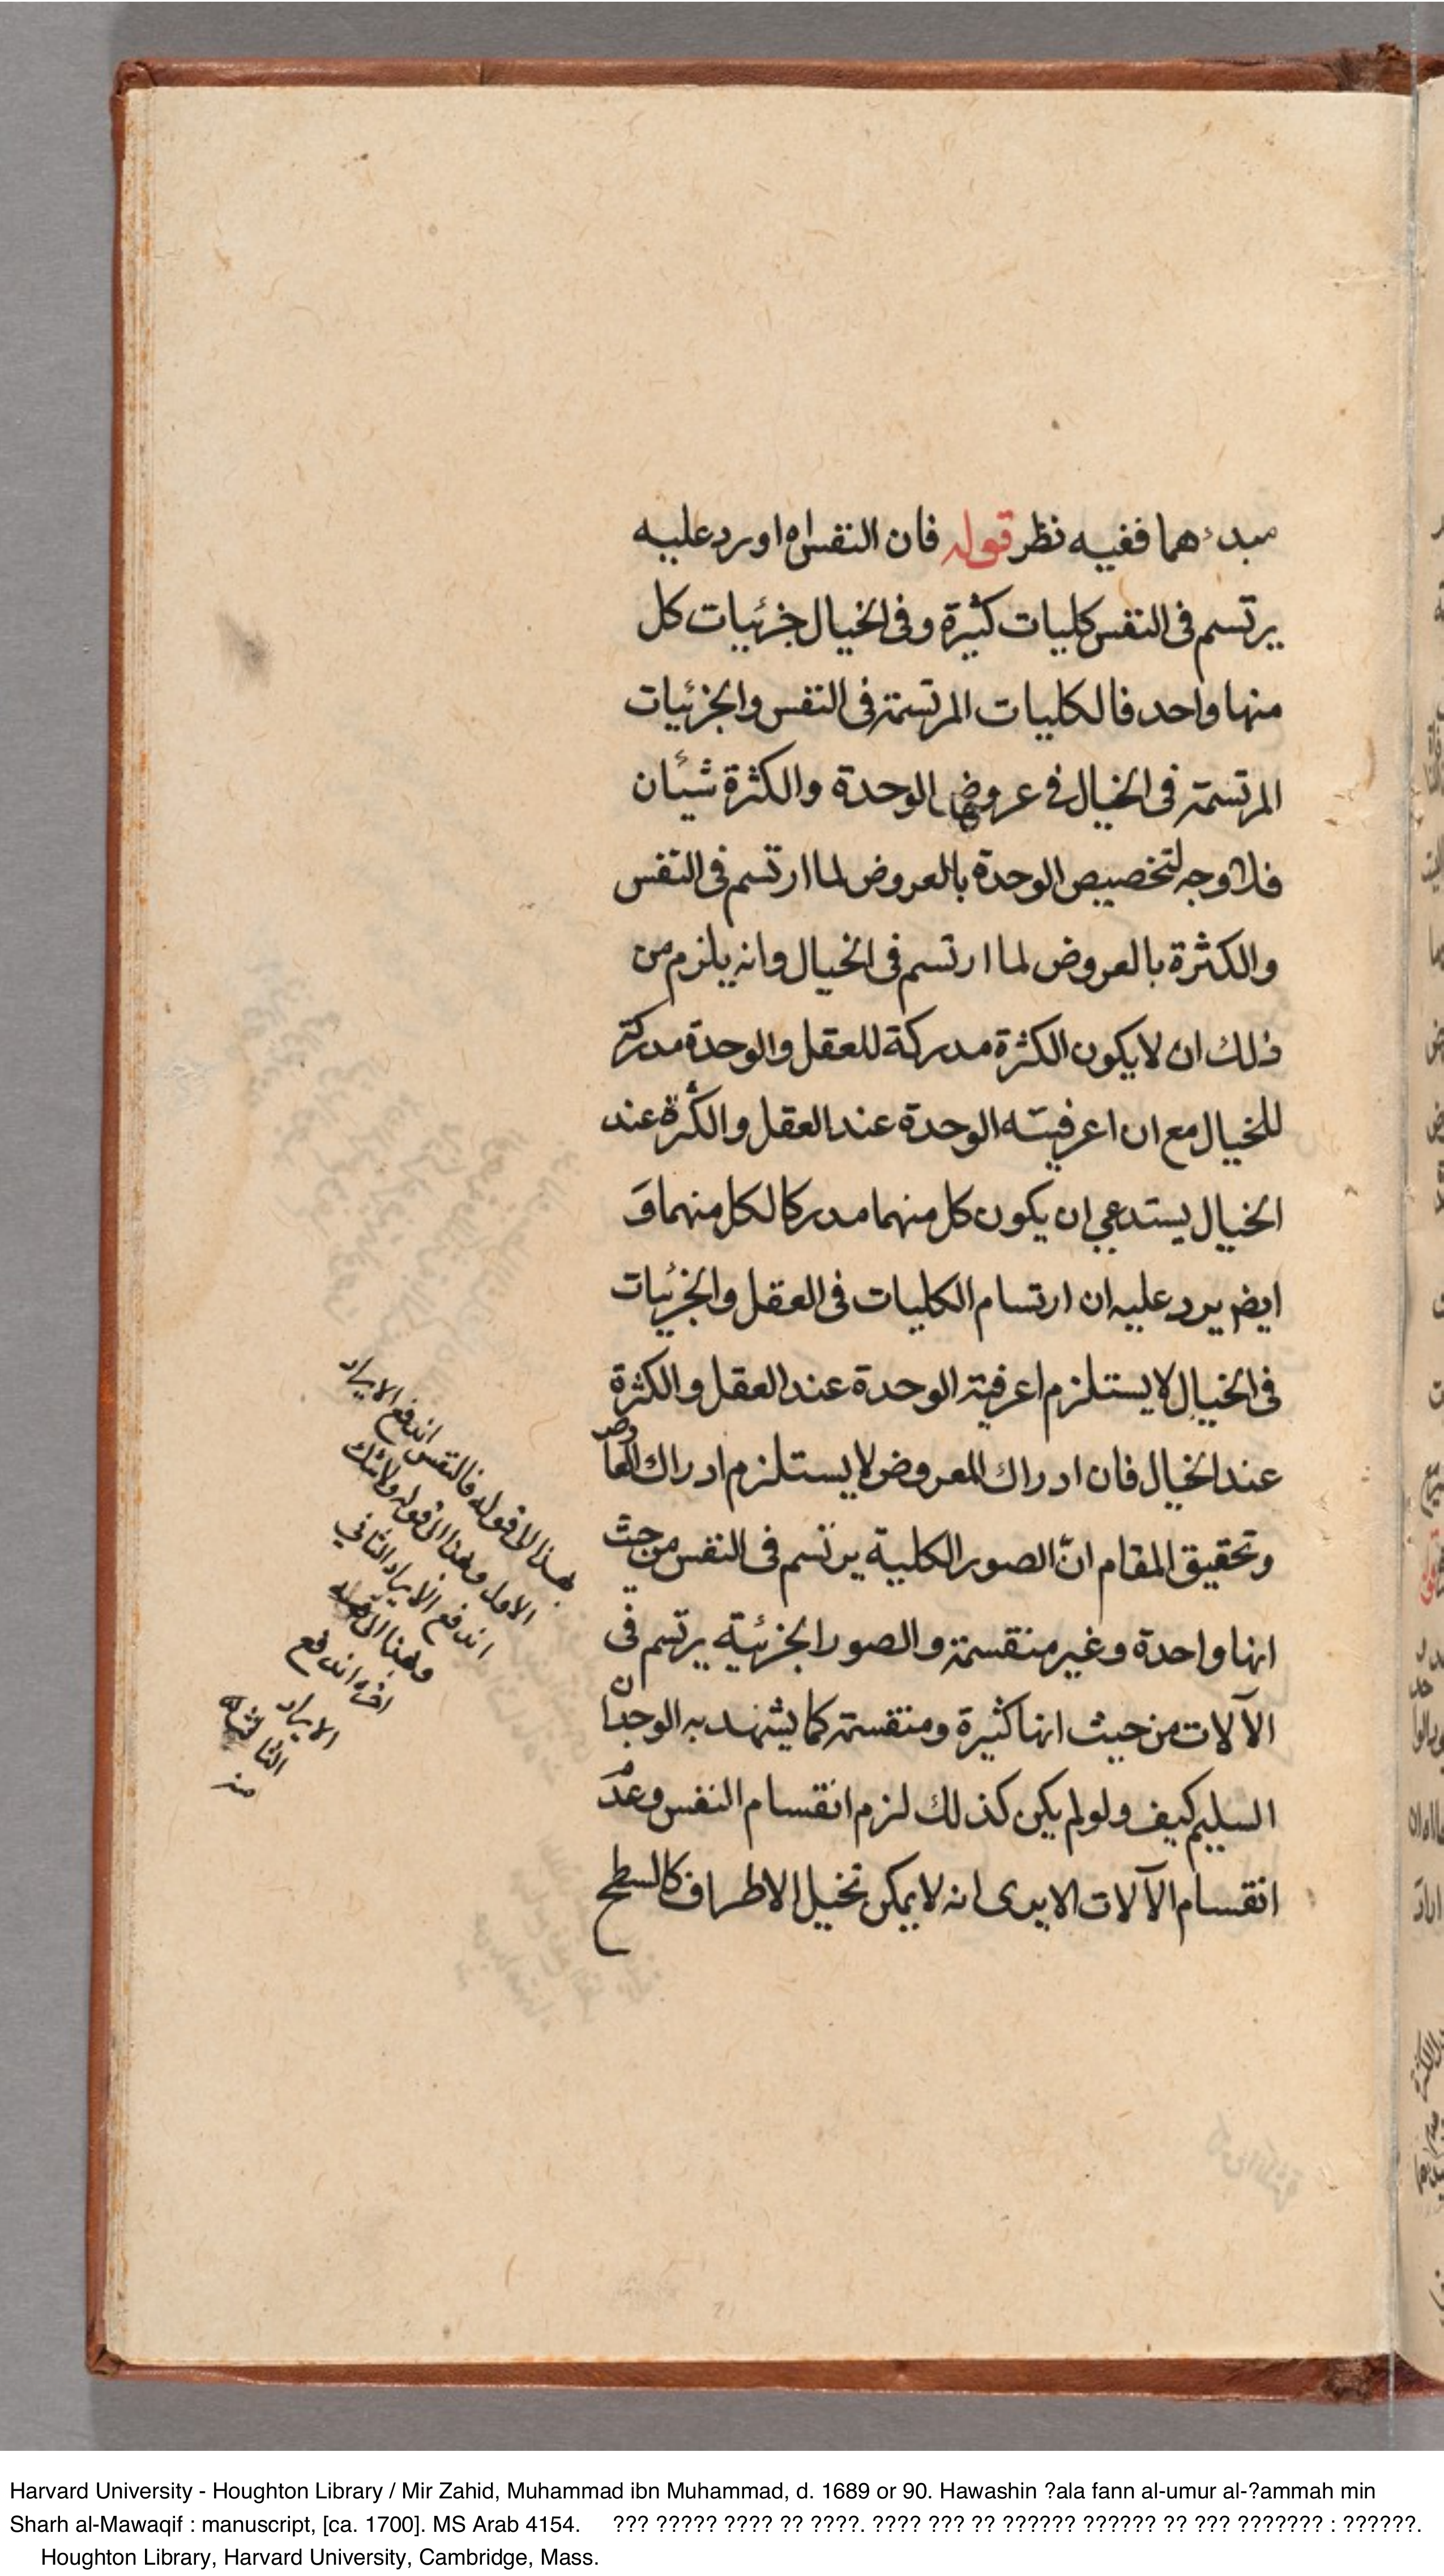 مبدءهما ففيه نظر قوله فان النفس اه اورد عليه
يرتسم فى النفس كليات كثيرة وفى الخيال جزئيات كل
منها واحد فالكليات المرتسمة فى النفس والجزئيات
المرتسمة فى الخيال فى عروض الوحدة والكثرة شيئان
فلا وجه لتخصيص الوحدة بالعروض لما ارتسم فى النفس
والكثرة بالعروض لما ارتسم فى الخيال وانه يلزم من
ذلك ان لا يكون الكثرة مدركة للعقل والوحدة مدركة
للخيال مع ان اعرفيته الوحدة عند العقل والكثرة عند
الخيال يستدعى ان يكون كل منهما مدركا لكل منهما و
ايض يرد عليه ان ارتسام الكليات فى العقل والجزئيات
فى الخيال لا يستلزم اعرفية الوحدة عند العقل والكثرة
عند الخيال فان ادراك المعروض لا يستلزم ادراك العارض
وتحقيق المقام انّ الصور الكلية يرتسم فى النفس من حيث
انها واحدة وغير منقسمة والصور الجزئية يرتسم فى
الآلات من حيث انها كثيرة ومنقسمة كما يشهد به الوجدان
السليم كيف ولو لم يكن كذلك لزم انقسام النفس وعدم
انقسام الآلات الا يرى انه لا يمكن تخيل الاطراف كالسطح
بهذا الى قوله فالنفس اندفع الايراد
الاول وهذا الى قوله ولا شك
اندفع الايراد الثانى
وهذا الى قوله
اخره اندفع
الايراد
الثالث
منه
Harvard University - Houghton Library / Mir Zahid, Muhammad ibn Muhammad, d. 1689 or 90. Hawashin ?ala fann al-umur al-?ammah min
Sharh al-Mawaqif : manuscript, [ca. 1700]. MS Arab 4154. ??? ????? ???? ?? ????. ???? ??? ?? ?????? ?????? ?? ??? ??????? : ??????.
Houghton Library, Harvard University, Cambridge, Mass.